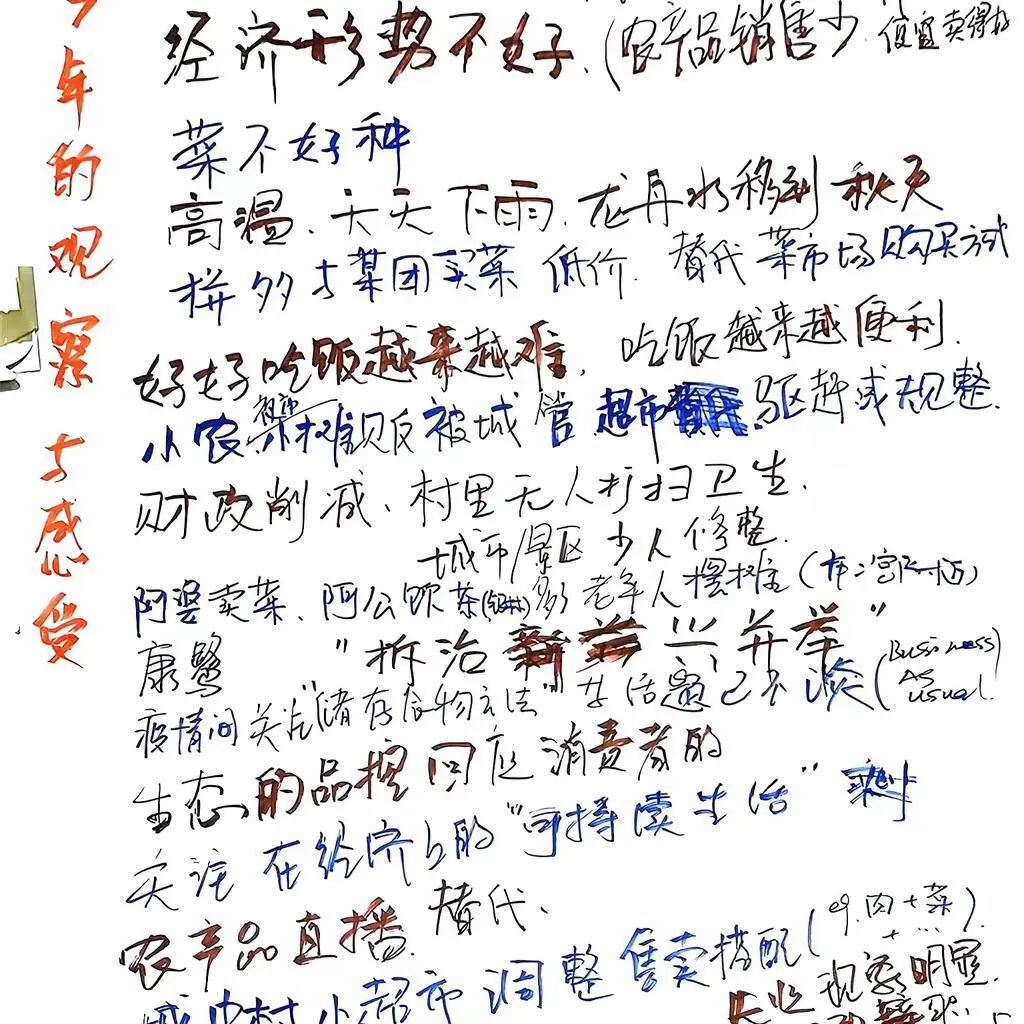 今年的观察与感受
经济形势不好.(农产品销售少 便宜卖得好
菜不好种
高温.天天下雨.龙舟水移到秋天
拼多多与某团买菜 低价.替代菜市场购买方式
好好吃饭越来越难,吃饭越来越便利.
小农菜摊贩被城管 超市 驱赶或规整.
财政削减、村里无人打扫卫生.
城市/景区 少人修整.
阿婆卖菜、阿公饮茶 多老年人摆摊
康鹭 "拆治 兴 并举"
疫情间关于"储存食物方法" 等话题已不谈(Business As usual.
生态的品控 回应消费者的
关注 在经济上的"可持续生活"
农产品直播. 替代、
城中村小超市调整售卖搭配(eg.肉+菜).
+...
现象明显.